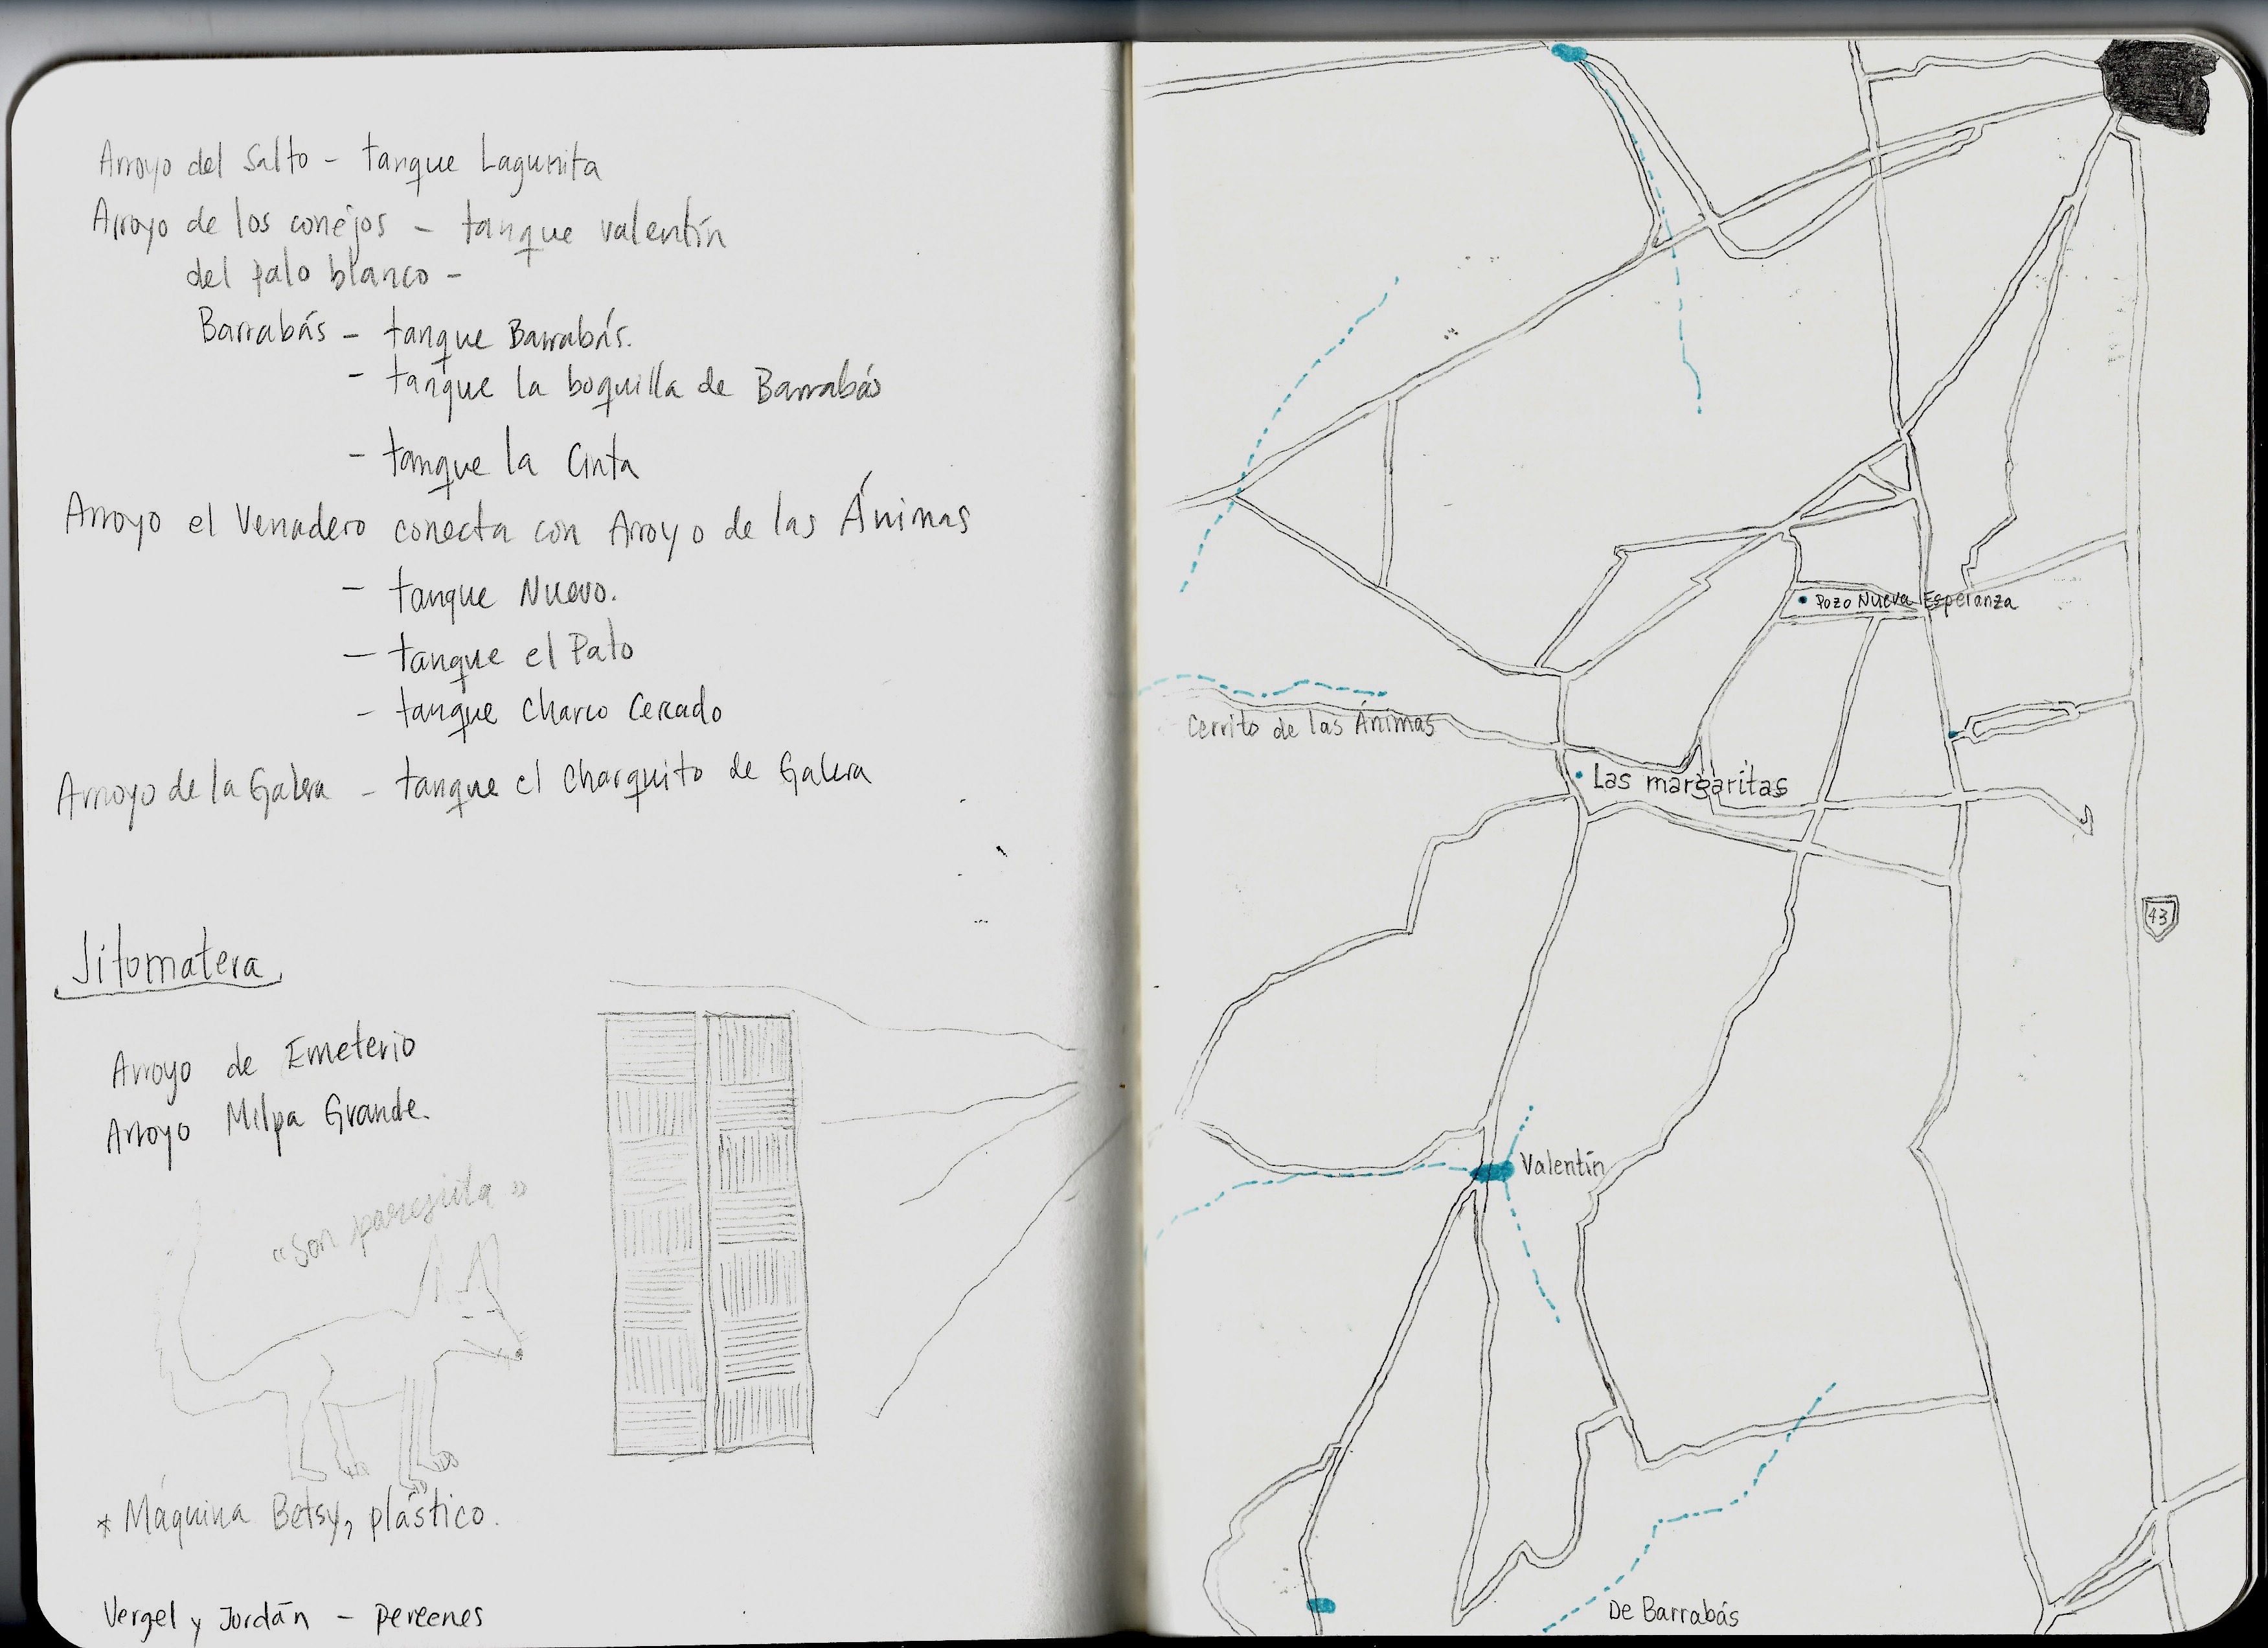 Arroyo del Salto – tanque Lagunita
Arroyo de los conejos – tanque valentín
del palo blanco –
Barrabás – tanque Barrabás.
- tanque la boquilla de Barrabás
- tanque la Cinta
Arroyo el Venadero conecta con Arroyo de las Ánimas
- tanque Nuevo.
- tanque el Pato
- tanque Charco Cercado
Arroyo de la Galera – tanque el Charquito de Galera
Jitomatera
Arroyo de Emeterio
Arroyo Milpa Grande.
"son parejita"
* Máquina Betsy, plástico.
Vergel y Jordán – pereenes
Pozo Nueva Esperanza
Cerrito de las Ánimas
Las margaritas
43
Valentín
De Barrabás